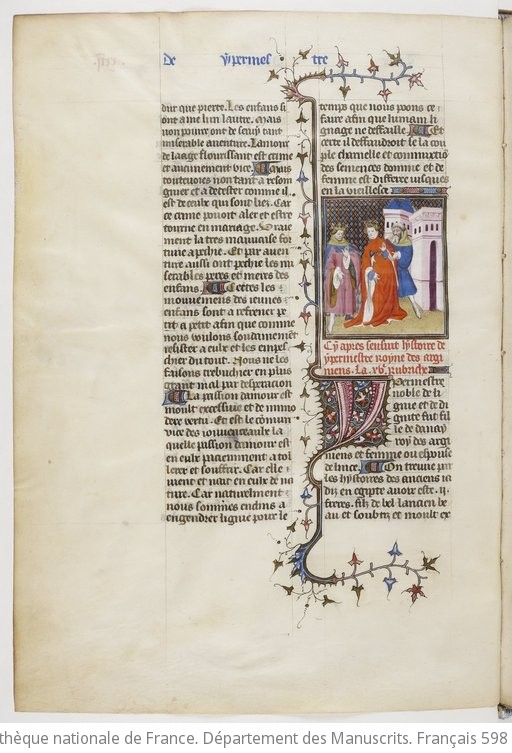 De ypermes tre
dur que pierre. Les enfans si
ont aime lun lautre. Mais
non pourre ont de seuy tant
miserable auenture. Lamour
de laage flourissant est crime
et aucunement vice. Mais
touteuoies non tant a resom
gnier et a detester comme il
est de ceulx qui sont liez. Car
ce crime pouoit aler et estre
tourne en mariage. Vraie
ment la tres mauuaise for
tune a pechie. Et par auen
ture aussi ont pechie les mi
serables peres et meres des
enfans. Certes les
mouuemens des ieunes
enfans sont a refrener pe
tit a petit afin que comme
nous voulons soudainement
resister a eulx et les empes
cher du tout. Nous ne les
faisons trebucher en plus
grant mal par desperacion
La passion damour est
moult excessiue et de immo
dere vertu. Et est le commun
vice des iouuenceaulx la
quelle passion damour est
en eulx paciemment a tol
lerer et souffrir. Car elle
uient et naist en eulx de na
ture. Car naturelment
nous sommes enclins a
engendrer lignie pour le
temps que nous poons ce
faire afin que lumain li
gnage ne deffaille. Et
certe il deffauldroit se la cou
ple charnelle et commixtio
des semences domme et de
femme est differee iusques
en la vieillesce
Cy apres sensuit lystoire de
ypermestre royne des argi
uiens. La .xve. rubriche
Ypermestre
noble de li
gnie et de di
gnite fut fil
le de danay
roy des argi
uiens et femme ou espouse
de lince. On treuue par
les hystoires des anciens ia
diz en egipte auoir este .ii.
freres. filz de bel lancien be
au et soubtiz et moult ex
thèque nationale de France. Département des Manuscrits. Français 598